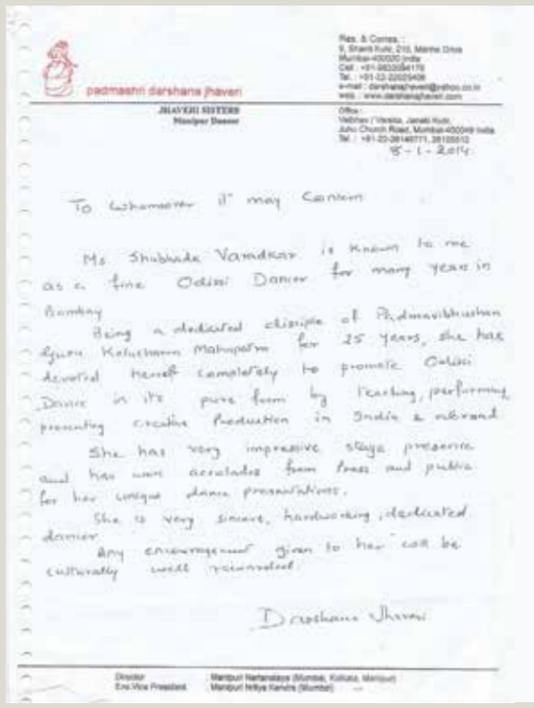 padmashri darshana jhaveri
JHAVERI SISTERS
Manipur Dancer
Res. & Corres. :
9, Shanti Kutir, 210, Marine Drive
Mumbai-400020 India
Cell :
Tel. : +91-22-22025408
e-mail : darshanajhaveri@yahoo.co.in
web : www.darshanajhaveri.com
Office :
Janaki Kutir,
Juhu Church Road, Mumbai-400049 India
Tel. : +91-22-26146771,
8-1-2014
To whomsoever it may Concern
Ms Shubhada Varadkar is known to me
as a fine Odissi Dancer for many years in
Bombay
Being a dedicated disciple of Padmavibhushan
Guru Kelucharan Mahapatra for 25 years, she has
devoted herself completely to promote Odissi
Dance in its pure form by teaching, performing,
presenting creative Production in India & abroad
She has very impressive stage presence
and has won accolades from Press and public
for her unique dance presentations.
She is very sincere, hardworking, dedicated
dancer
Any encouragement given to her will be
culturally well rewarded
Darshana Jhaveri
Director : Manipuri Nartanalaya (Mumbai, Kolkata, Manipur)
Ene.Vice President : Manipuri Nritya Kendra (Mumbai)